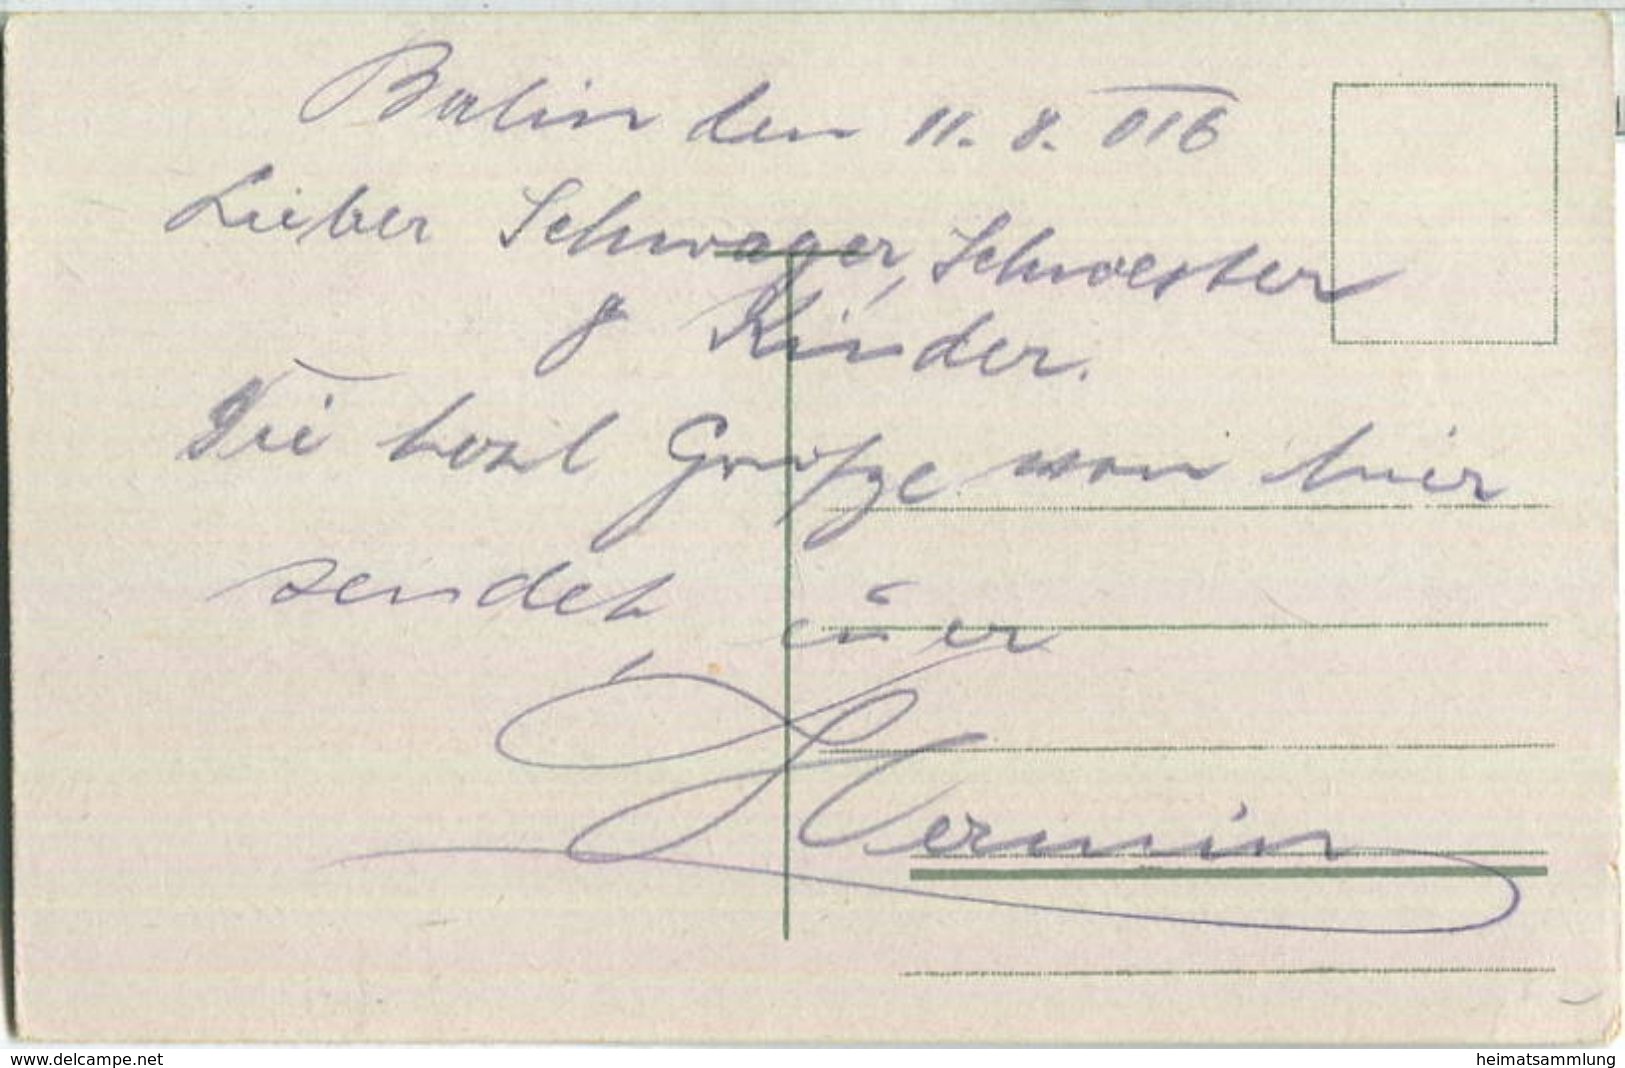 Berlin den 11. 8. 016
Lieber Schwager, Schwester
& Kinder.
Die Grüße von hier
sendet euer
Hermin
www.delcampe.net
heimatsammlung